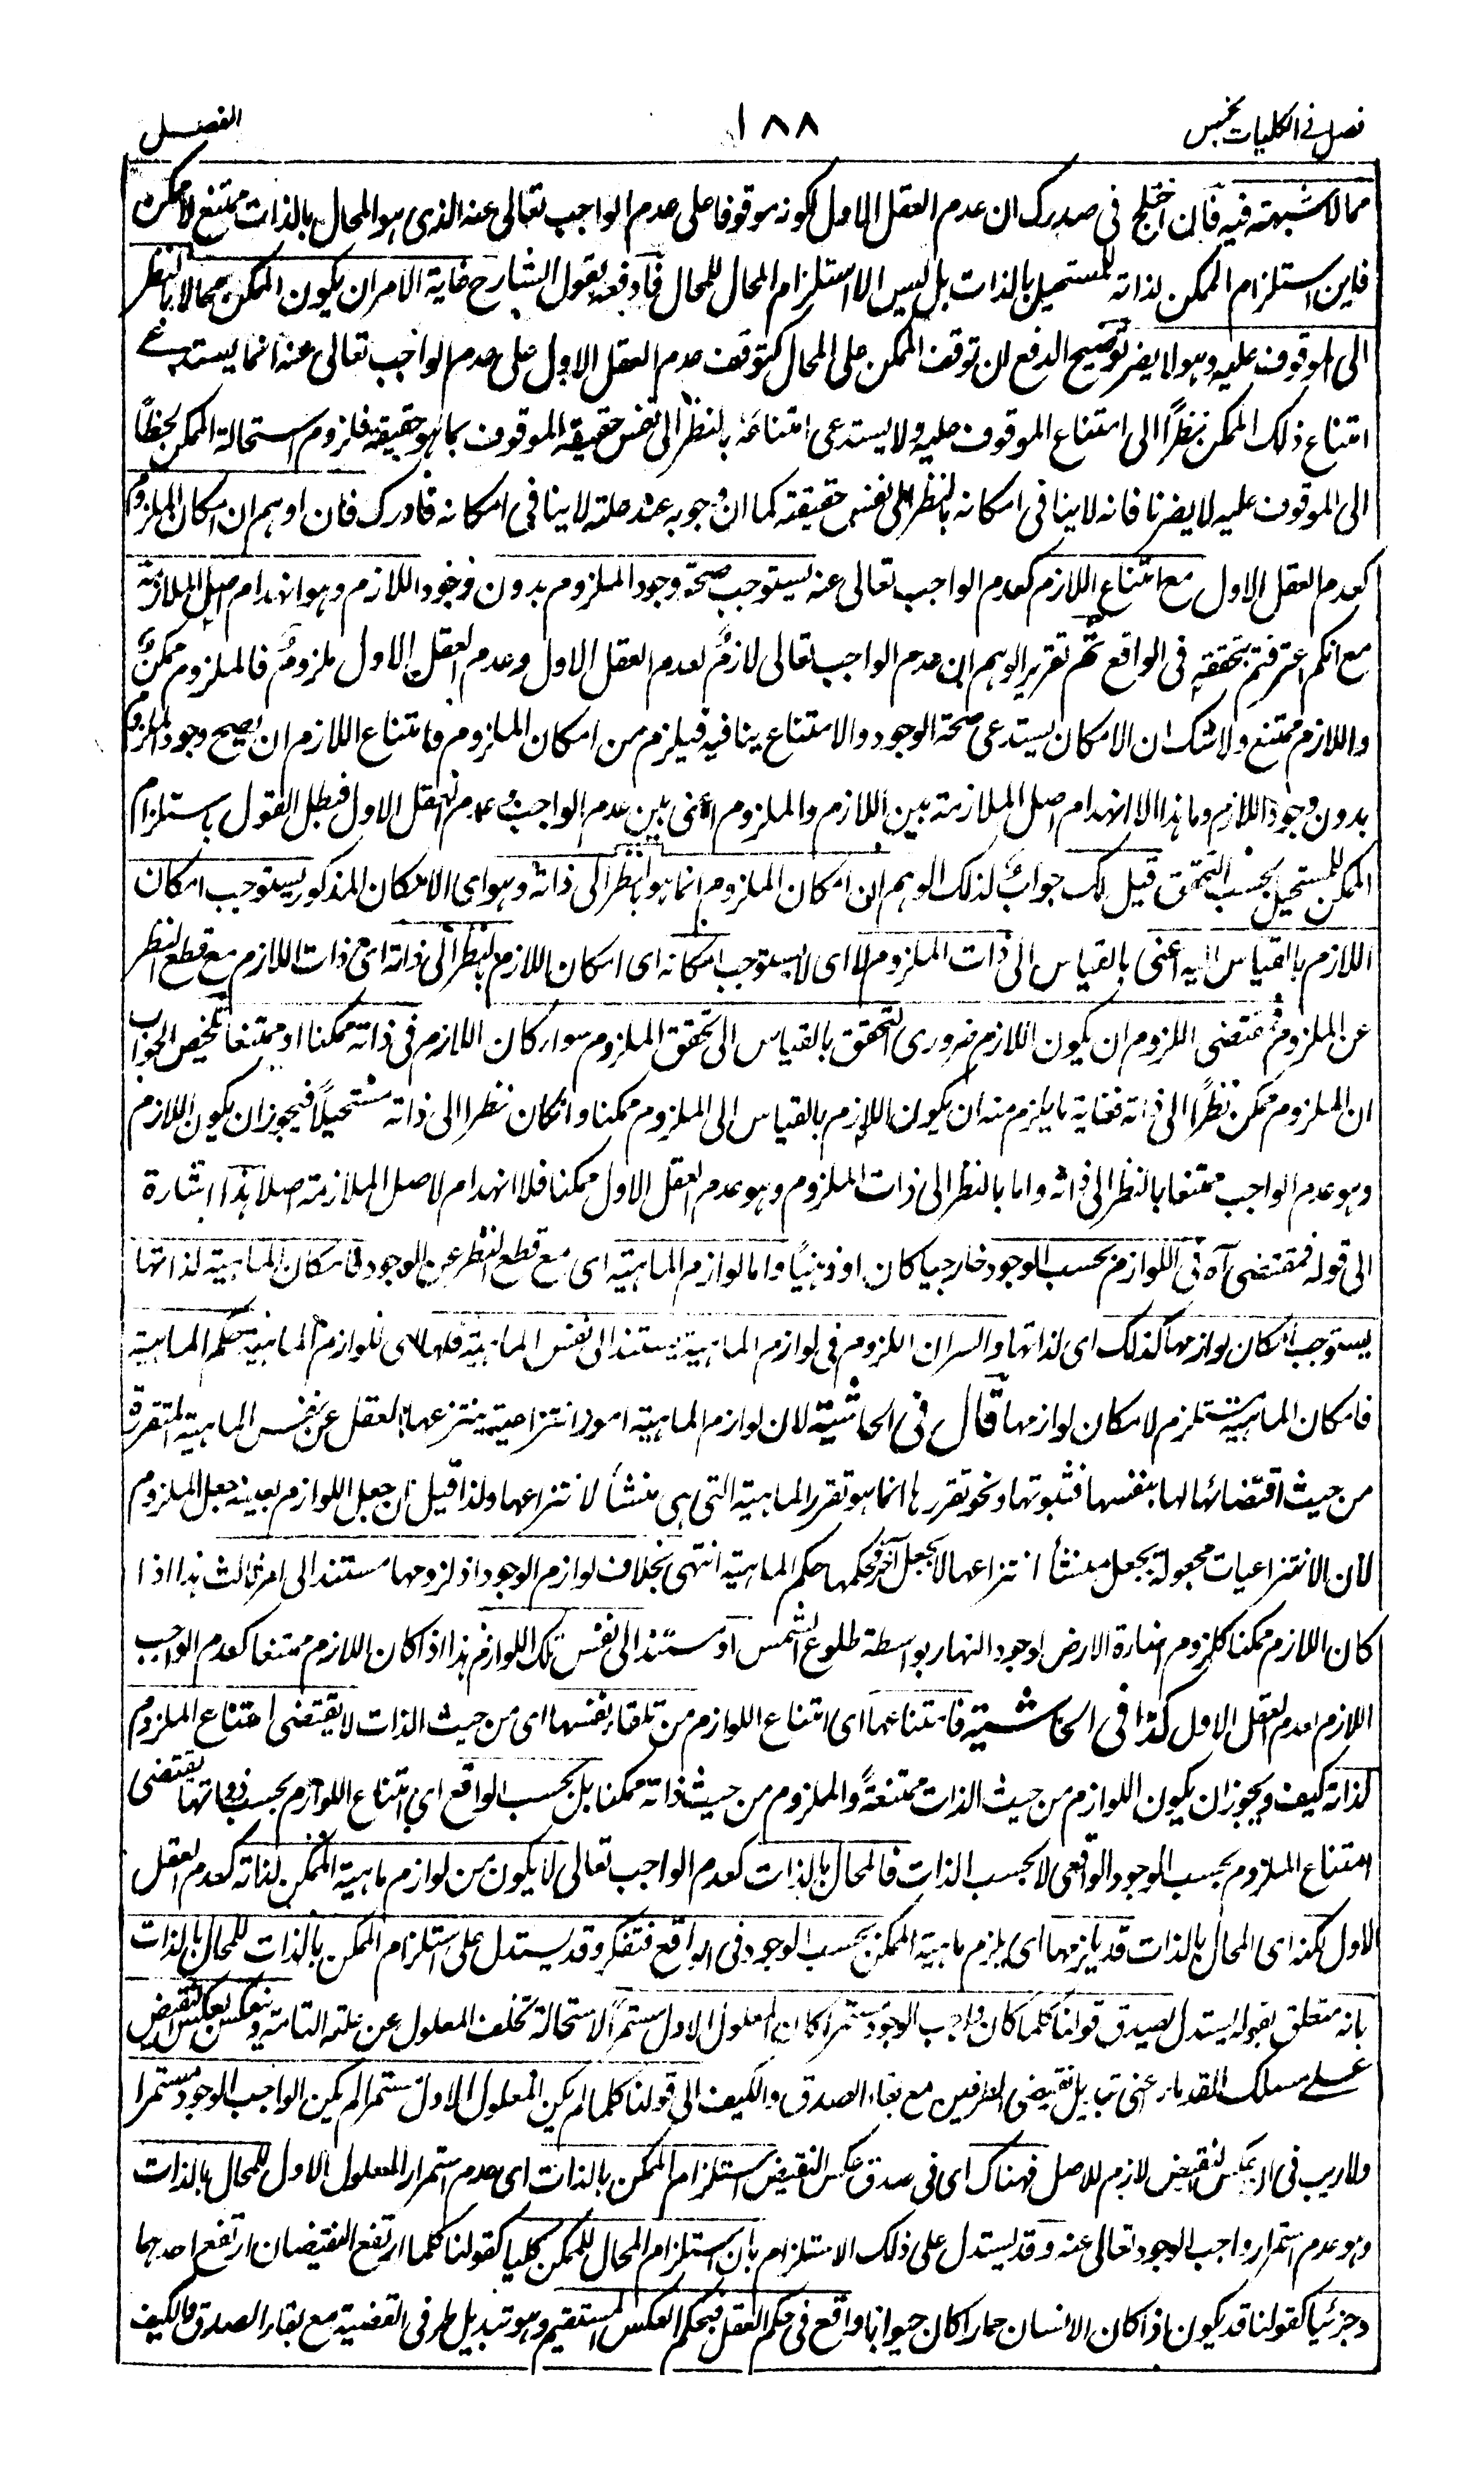 فصل في الكليات الخمس
١٨٨
الفصل
مما لا شبهة فيه فان اختلج في صدرك ان عدم العقل الاول لكونه موقوفا على عدم الواجب تعالى عنه الذي هو المحال بالذات ممتنع لا ممكن
فاين استلزام الممكن لذاته للمستحيل بالذات بل ليس الا استلزام المحال للمحال فادفعه بقول الشارح غاية الامر ان يكون الممكن محالا بالنظر
الى الموقوف عليه وهو لا يضر توضيح الدفع ان توقف الممكن على المحال كتوقف عدم العقل الاول على عدم الواجب تعالى عنه انما يستدعي
امتناع ذلك الممكن نظرًا الى امتناع الموقوف عليه ولا يستدعى امتناعه بالنظر الى نفس حقيقة الموقوف بما هو حقيقة فلزوم استحالة الممكن لحظًا
الى الموقوف عليه لا يضرنا فانه لا ينافى امكانه بالنظر الى نفس حقيقته كما ان وجوبه عند علته لا ينافى امكانه فادرك فان اوهم ان امكان الملزوم
كعدم العقل الاول مع امتناع اللازم كعدم الواجب تعالى عنه يستوجب صحة وجود الملزوم بدون وجود اللازم وهو انهدام اصل الملازمة
مع انكم اعترفتم بتحققه في الواقع ثم تقرير الوهم ان عدم الواجب تعالى لازمٌ لعدم العقل الاول وعدم العقل الاول ملزومٌ فالملزوم ممكنٌ
واللازم ممتنع ولا شك ان الامكان يستدعى صحة الوجود والامتناع ينافيه فيلزم من امكان الملزوم وامتناع اللازم ان يصح وجود الملزوم
بدون وجود اللازم وما هذا الا انهدام اصل الملازمة بين اللازم والملزوم اعنى بين عدم الواجب وعدم العقل الاول فبطل القول باستلزام
الممكن للمستحيل بحسب التحقق قيل لك جوابٌ لذلك الوهم ان امكان الملزوم انما هو بالنظر الى ذاته وهو اى الامكان المذكور يستوجب امكان
اللازم بالقياس اليه اعنى بالقياس الى ذات الملزوم لا اى لا يستوجب امكانه اى امكان اللازم بالنظر الى ذاته اى ذات اللازم مع قطع النظر
عن الملزوم فمقتضى اللزوم ان يكون اللازم ضرورى التحقق بالقياس الى تحقق الملزوم سواء كان اللازم في ذاته ممكنا او ممتنعا تلخيص الجواب
ان الملزوم ممكن نظرًا الى ذاته فغاية ما يلزم منه ان يكون اللازم بالقياس الى الملزوم ممكنا وان كان نظرا الى ذاته مستحيلًا فيجوز ان يكون اللازم
وهو عدم الواجب ممتنعا بالنظر الى ذاته واما بالنظر الى ذات الملزوم وهو عدم العقل الاول ممكنا فلا انهدام لاصل الملازمة اصلا هذا اشارة
الى قوله فمقتضى آه فى اللوازم بحسب الوجود خارجيا كان او ذهنيًا واما لوازم الماهية اى مع قطع النظر عن الوجود فامكان الماهية لذاتها
يستوجب امكان لوازمها كذلك اى لذاتها والسر ان اللزوم في لوازم الماهية يستند الى نفس الماهية فلها اى للوازم الماهية حكم الماهية
فامكان الماهية مستلزم لامكان لوازمها قال فى الحاشية لان لوازم الماهية امور انتزاعية ينتزعها العقل عن نفس الماهية المتقررة
من حيث اقتضائها لها بنفسها فثبوتها ونحو تقررها انما هو تقرر الماهية التى هى منشأ لانتزاعها ولذا قيل ان جعل اللوازم بعينه جعل الملزوم
لان الانتزاعيات مجعولة بجعل منشأ انتزاعها لا بجعل آخر فحكمها حكم الماهية انتهى بخلاف لوازم الوجود اذ لزومها مستند الى امر ثالث هذا اذا
كان اللازم ممكنا كلزوم انارة الارض لوجود النهار بواسطة طلوع الشمس او مستند الى نفس تلك اللوازم هذا اذا كان اللازم ممتنعا كعدم الواجب
اللازم لعدم العقل الاول كذا فى الحاشية فامتناعها اى امتناع اللوازم من تلقاء نفسها اى من حيث الذات لا يقتضى امتناع الملزوم
لذاته كيف ويجوز ان يكون اللوازم من حيث الذات ممتنعةً والملزوم من حيث ذاته ممكنا بل بحسب الواقع اى امتناع اللوازم بحسب ذواتها يقتضى
امتناع الملزوم بحسب الوجود الواقعى لا بحسب الذات فالمحال بالذات كعدم الواجب تعالى لا يكون من لوازم ماهية الممكن لذاته كعدم العقل
الاول لكنه اى المحال بالذات قد يلزمها اى يلزم ماهية الممكن بحسب الوجود فى الواقع فتفكر وقد يستدل على استلزام الممكن بالذات للمحال بالذات
بانه متعلق بقوله يستدل يصدق قولنا كلما كان واجب الوجود مستمرا كان المعلول الاول مستمرًا لاستحالة تخلف المعلول عن علته التامة وينعكس بعكس النقيض
على مسلك القدماء اعنى تبديل نقيضى الطرفين مع بقاء الصدق والكيف الى قولنا كلما لم يكن المعلول الاول مستمرا لم يكن الواجب الوجود مستمرا
ولا ريب فى ان عكس النقيض لازم للاصل فهناك اى فى صدق عكس النقيض استلزام الممكن بالذات اى عدم استمرار المعلول الاول للمحال بالذات
وهو عدم استمرار واجب الوجود تعالى عنه وقد يستدل على ذلك الاستلزام بان استلزام المحال للممكن كليا كقولنا كلما ارتفع النقيضان ارتفع احدهما
وجزئيا كقولنا قد يكون اذا كان الانسان حمارا كان حيوانا واقع فى حكم العقل فبحكم العكس المستقيم وهو تبديل طرفى القضية مع بقاء الصدق والكيف